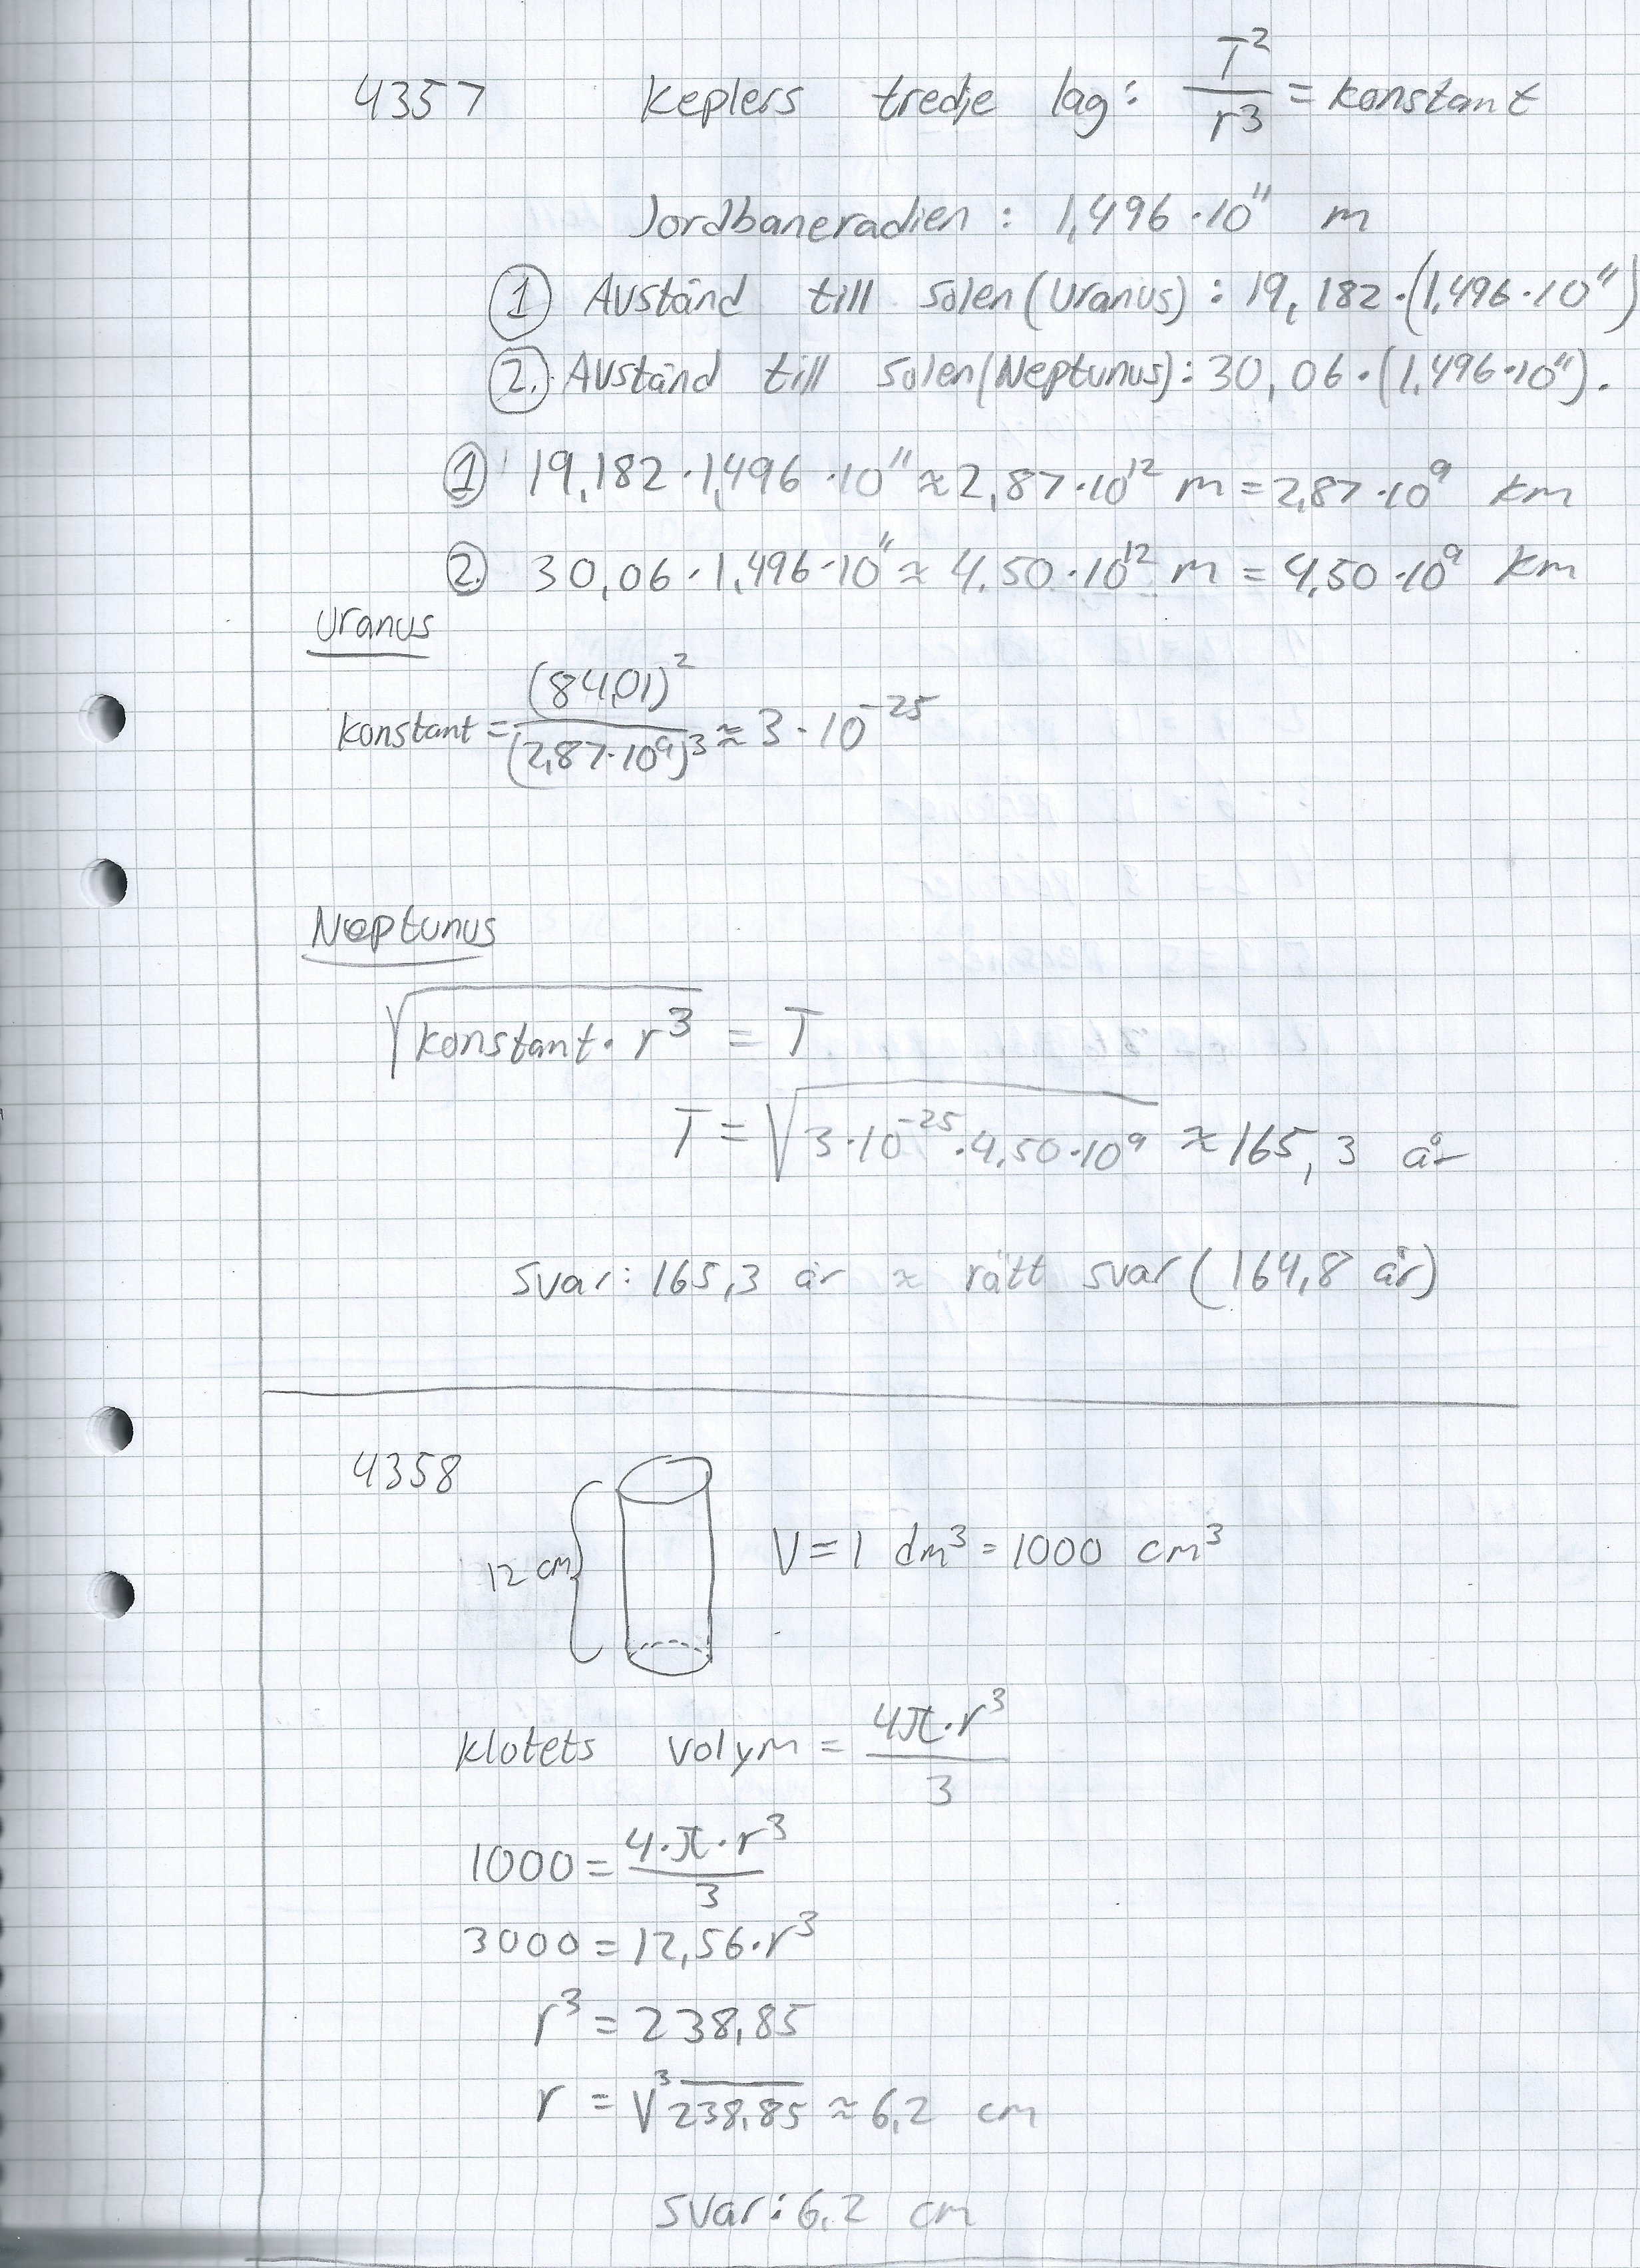 4357 Keplers tredje lag: T²/r³ = konstant
Jordbaneradien : 1,496·10¹¹ m
① Avstånd till solen (Uranus) : 19,182·(1,496·10¹¹)
②. Avstånd till solen (Neptunus): 30,06·(1,496·10¹¹).
① 19,182·1,496·10¹¹ ≈ 2,87·10¹² m = 2,87·10⁹ km
②. 30,06·1,496·10¹¹ ≈ 4,50·10¹² m = 4,50·10⁹ km
Uranus
konstant = (84,01)²/(2,87·10⁹)³ ≈ 3·10⁻²⁵
Neptunus
√(konstant·r³) = T
T = √(3·10⁻²⁵·4,50·10⁹) ≈ 165,3 år
Svar: 165,3 år ≈ rätt svar (164,8 år)
4358
12 cm V = 1 dm³ = 1000 cm³
Klotets volym = 4π·r³/3
1000 = 4·π·r³/3
3000 = 12,56·r³
r³ = 238,85
r = ³√238,85 ≈ 6,2 cm
Svar: 6,2 cm